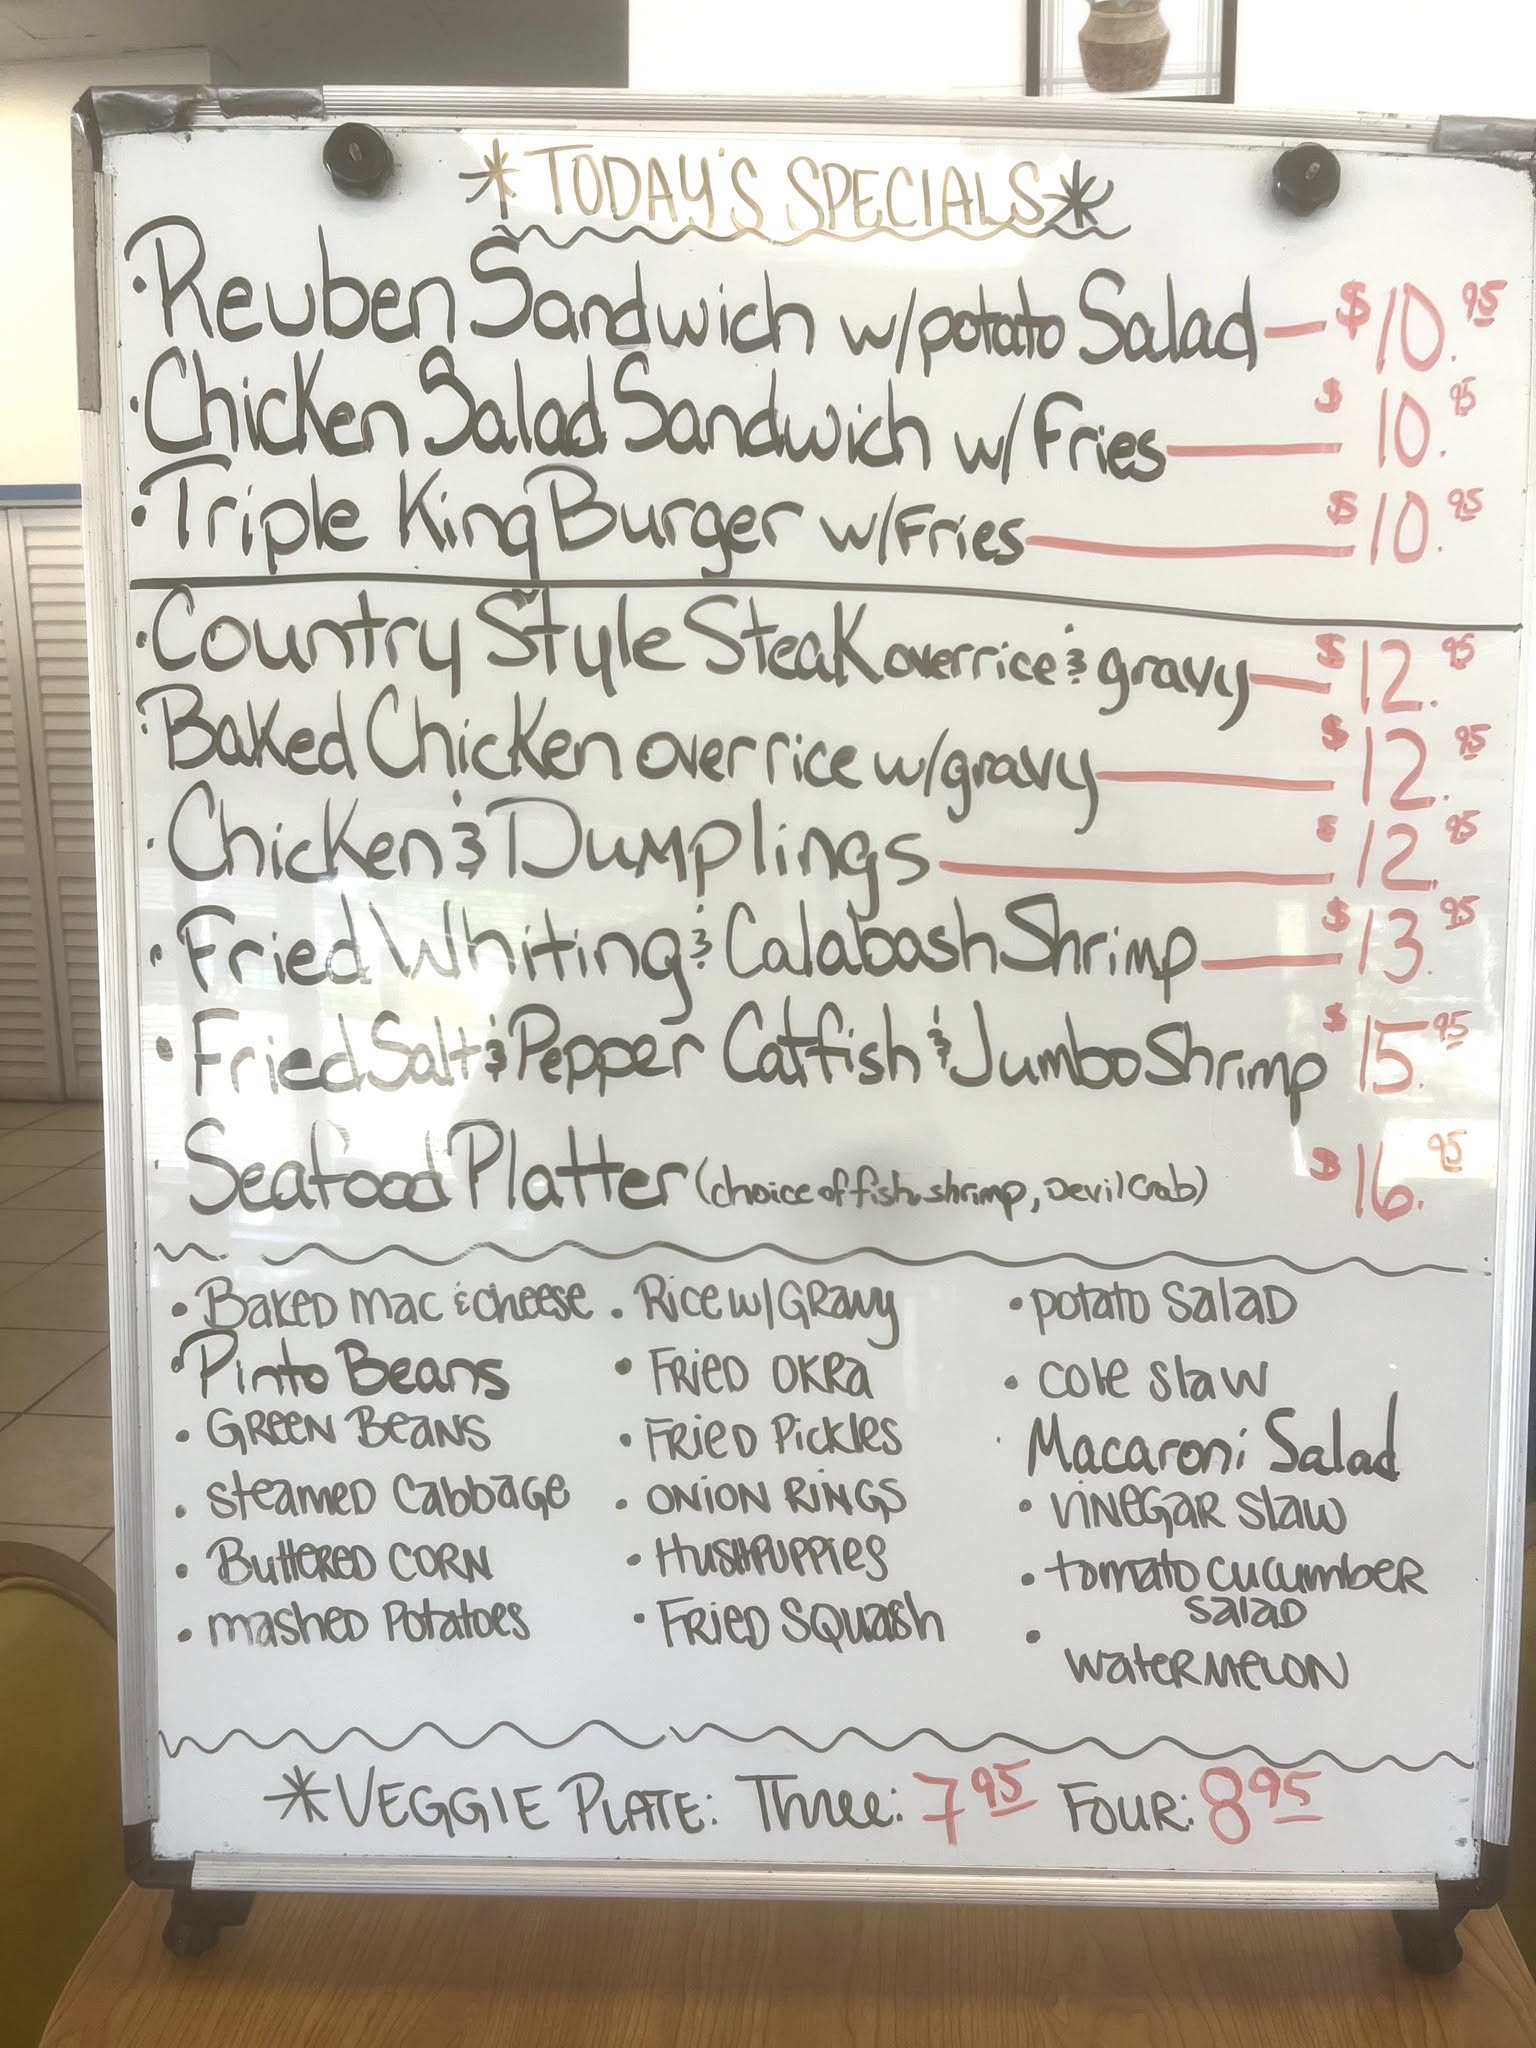 *TODAY'S SPECIALS*
• Reuben Sandwich w/potato Salad — $10.95
• Chicken Salad Sandwich w/Fries — $10.95
• Triple King Burger w/Fries — $10.95
• Country Style Steak over rice & gravy — $12.95
• Baked Chicken over rice w/gravy — $12.95
• Chicken & Dumplings — $12.95
• Fried Whiting & Calabash Shrimp — $13.95
• Fried Salt & Pepper Catfish & Jumbo Shrimp $15.95
• Seafood Platter (choice of fish, shrimp, Devil Crab) $16.95
• BAKED MAC & cheese
• Pinto Beans
• GREEN BEANS
• steamed Cabbage
• Buttered CORN
• mashed Potatoes
• Rice w/ GRAVY
• FRIED OKRA
• FRIED Pickles
• ONION RINGS
• HUSHPUPPIES
• FRIED SQUASH
• potato SALAD
• cole slaw
• Macaroni Salad
• VINEGAR SLAW
• tomato CUCUMBER
SALAD
• WATERMELON
*VEGGIE PLATE: Three: 7.95 FOUR: 8.95